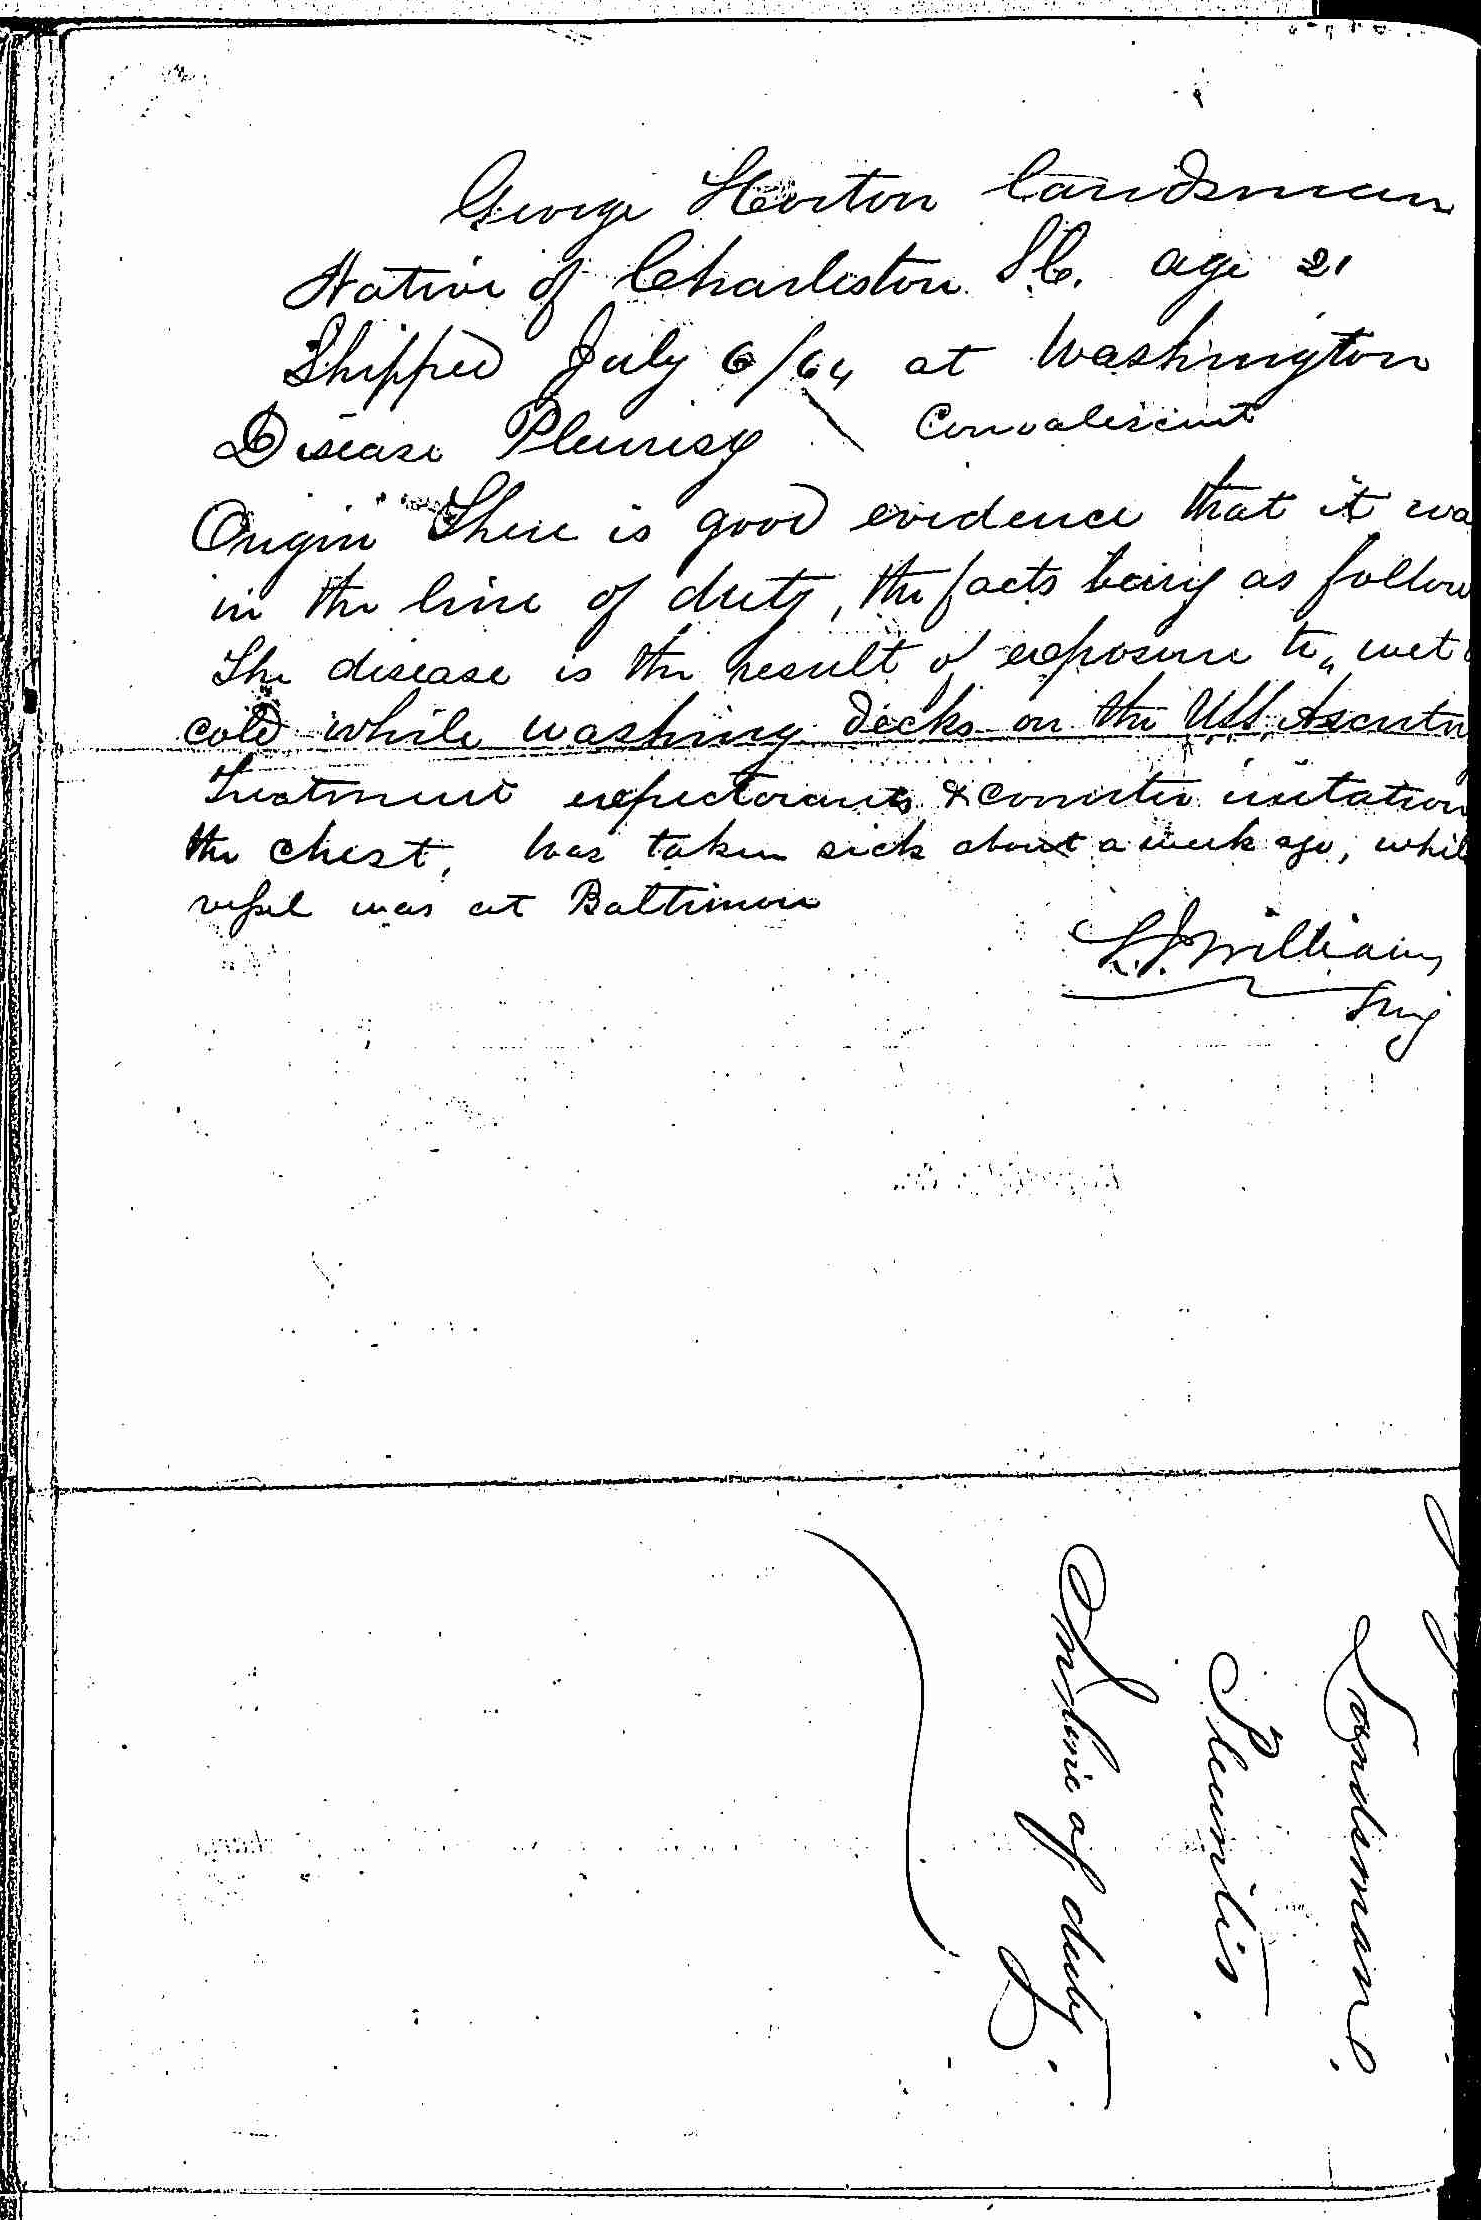 George Horton Landsman
Native of Charleston S.C. age 21
Shipped July 6/64 at Washington
Disease Pleurisy \ Convalescent
Origin There is good evidence that it wa
in the line of duty, the facts being as follow
The disease is the result of exposure to wet
cold while washing decks on the USS Ascutn
Treatment expectorants & counter irritation
the chest, Was taken sick about a week ago, whil
vessel was at Baltimore
Williams
Surg
Landsman.
Pleuritis.
In line of duty.